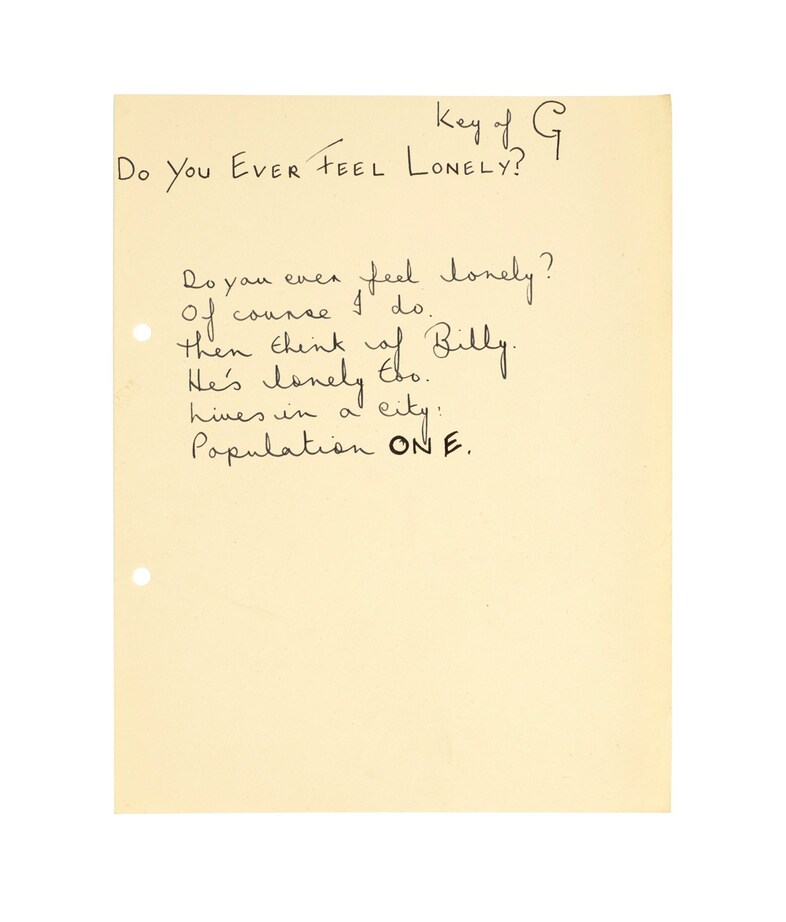 Key of G
DO YOU EVER FEEL LONELY?
Do you ever feel lonely?
Of course I do.
Then think of Billy.
He's lonely too.
Lives in a city:
Population ONE.